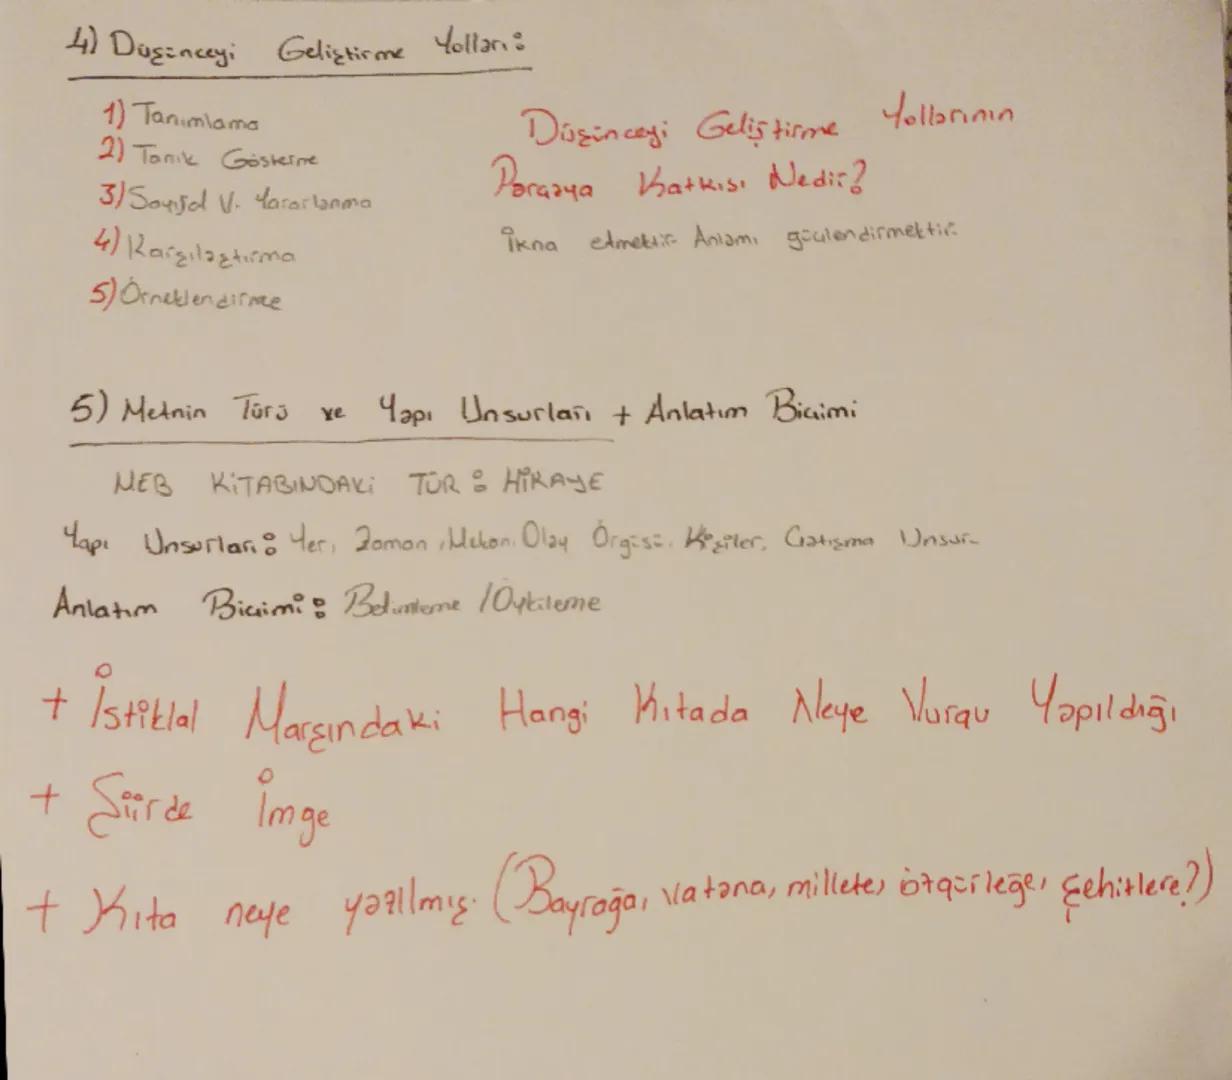 4) Düşünceyi Geliştirme Yolları:
1) Tanımlama
2) Tanık Gösterme
3) Sayısal V. Yararlanma
4) Karşılaştırma
5) Örneklendirme
Düşünceyi Geliştirme Yollarının
Parçaya Katkısı Nedir?
İkna etmektir. Anlamı güçlendirmektir.
5) Metnin Türü ve Yapı Unsurları + Anlatım Biçimi
MEB KİTABINDAKİ TÜR: HİKAYE
Yapı Unsurları: Yer, Zaman, Mekan, Olay Örgüsü, Kişiler, Çatışma Unsur.
Anlatım Biçimi: Betimleme / Öyküleme
+ İstiklal Marşındaki Hangi Kıtada Neye Vurgu Yapıldığı
+ Şiirde İmge
+ Kıta neye yazılmış. (Bayrağa, vatana, millete, özgürleğe, şehitlere?)